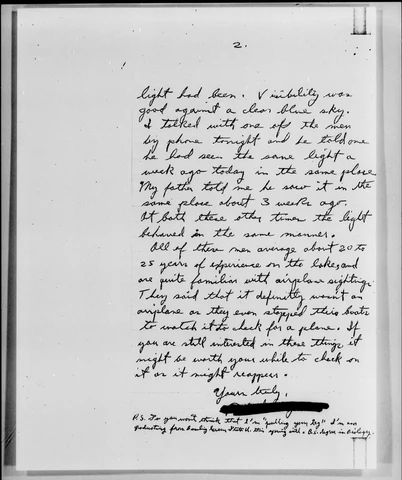 2.
light had been. Visibility was
good against a clear blue sky.
I talked with one of the men
by phone tonight and he told me
he had seen the same light a
week ago today in the same place.
My father told me he saw it in the
same place about 3 weeks ago.
At both these other times the light
behaved in the same manner.
All of these men average about 20 to
25 years of experience on the lakes, and
are quite familiar with airplane sightings.
They said that it definitly wasn't an
airplane as they even stopped their boats
to watch it to check for a plane. If
you are still interested in these things it
might be worth your while to check on
it or it might reappear.
Yours truly,
P.S. So you won't think that I'm "pulling your leg" I'm now
graduating from Bowling Green State U. this spring with a B.S. degree in Biology.